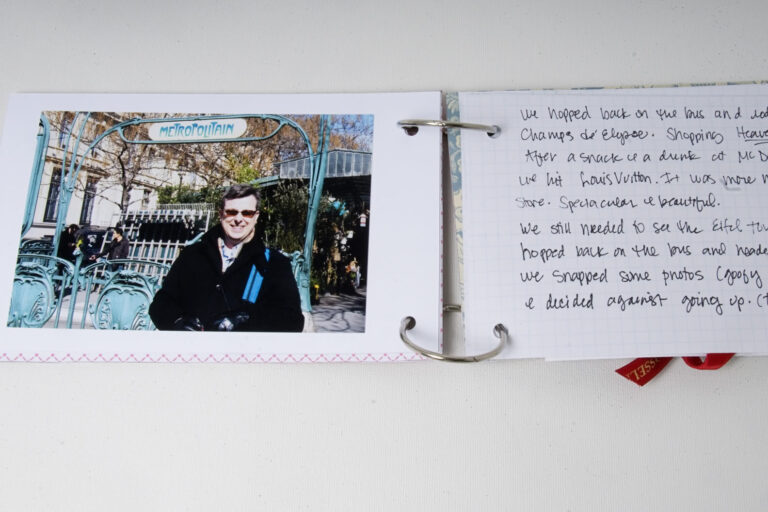 METROPOLITAIN
we hopped back on the bus and
Champs de Elysee. Shopping Heaven
After a snack & a drink at McD
we hit Louis Vuitton. It was more
store. Spectacular & beautiful.
We still needed to see the Eifel tow
hopped back on the bus and heade
we snapped some photos (goofy
& decided against going up. (t